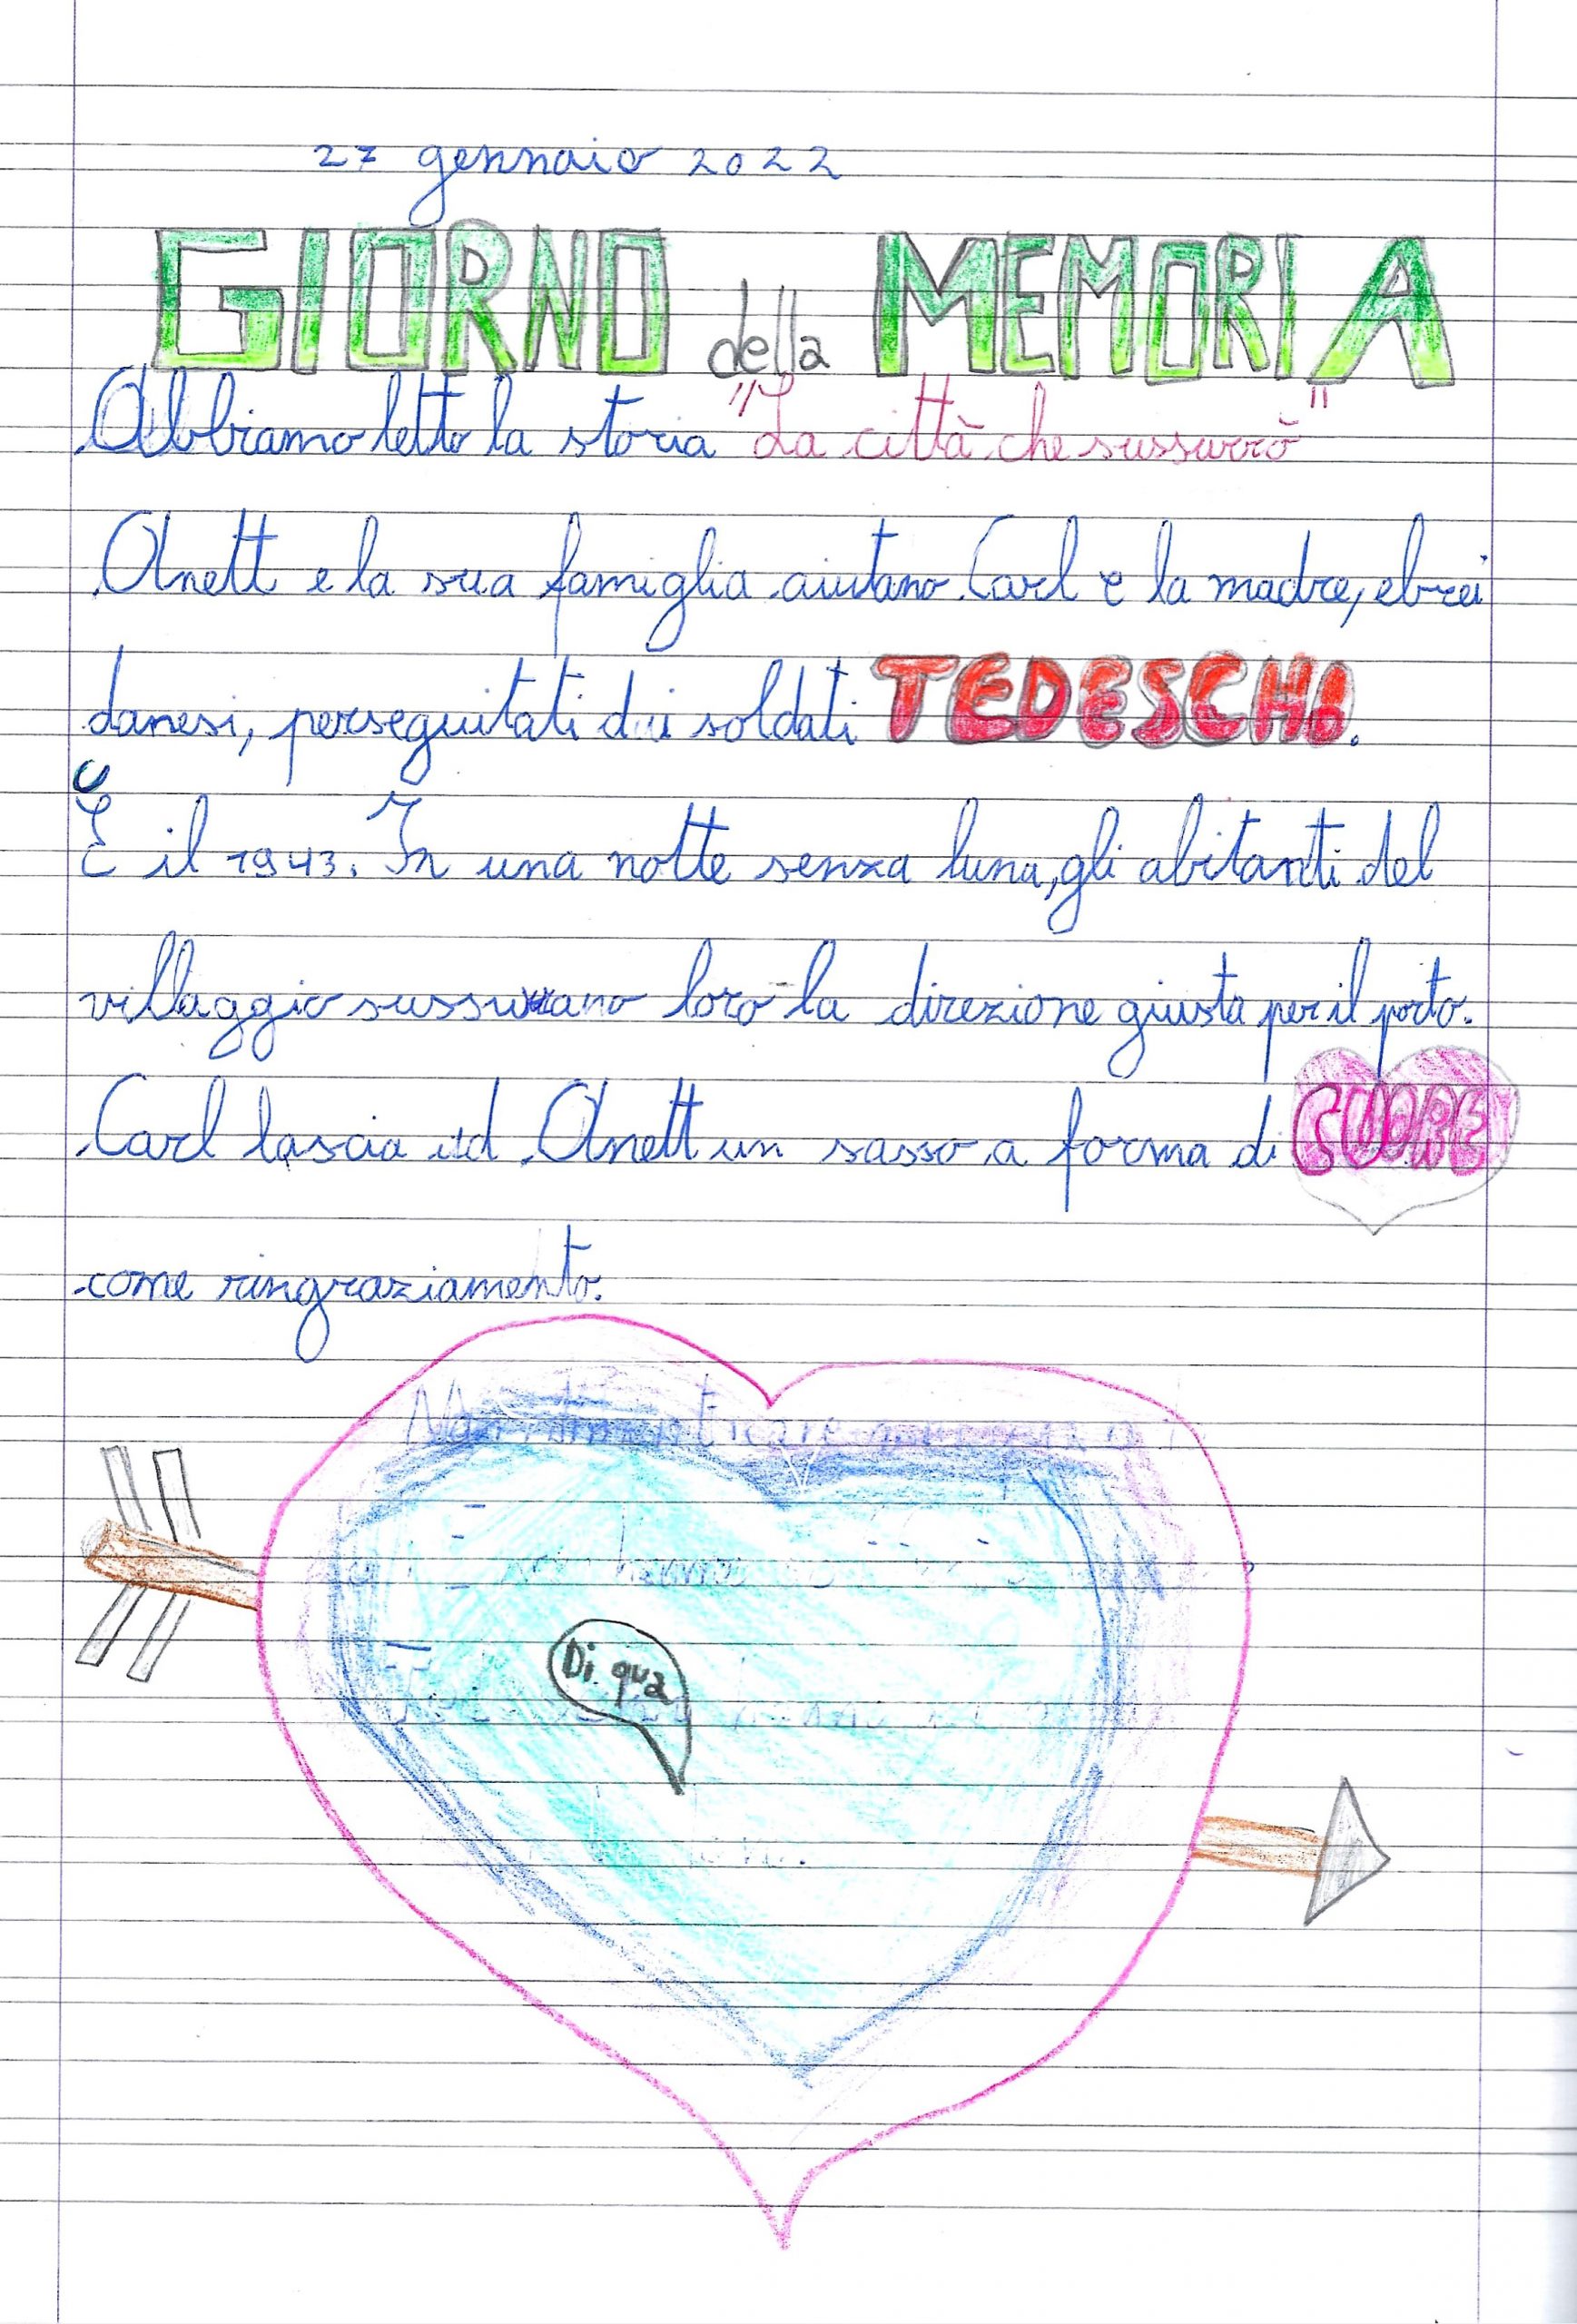 27 gennaio 2022
GIORNO della MEMORIA
Abbiamo letto la storia "La città che sussurrò"
Anett e la sua famiglia aiutano Carl e la madre, ebrei
danesi, perseguitati dai soldati TEDESCHI.
È il 1943. In una notte senza luna, gli abitanti del
villaggio sussurrano loro la direzione giusta per il porto.
Carl lascia ad Anett un sasso a forma di CUORE
come ringraziamento.
Di qua